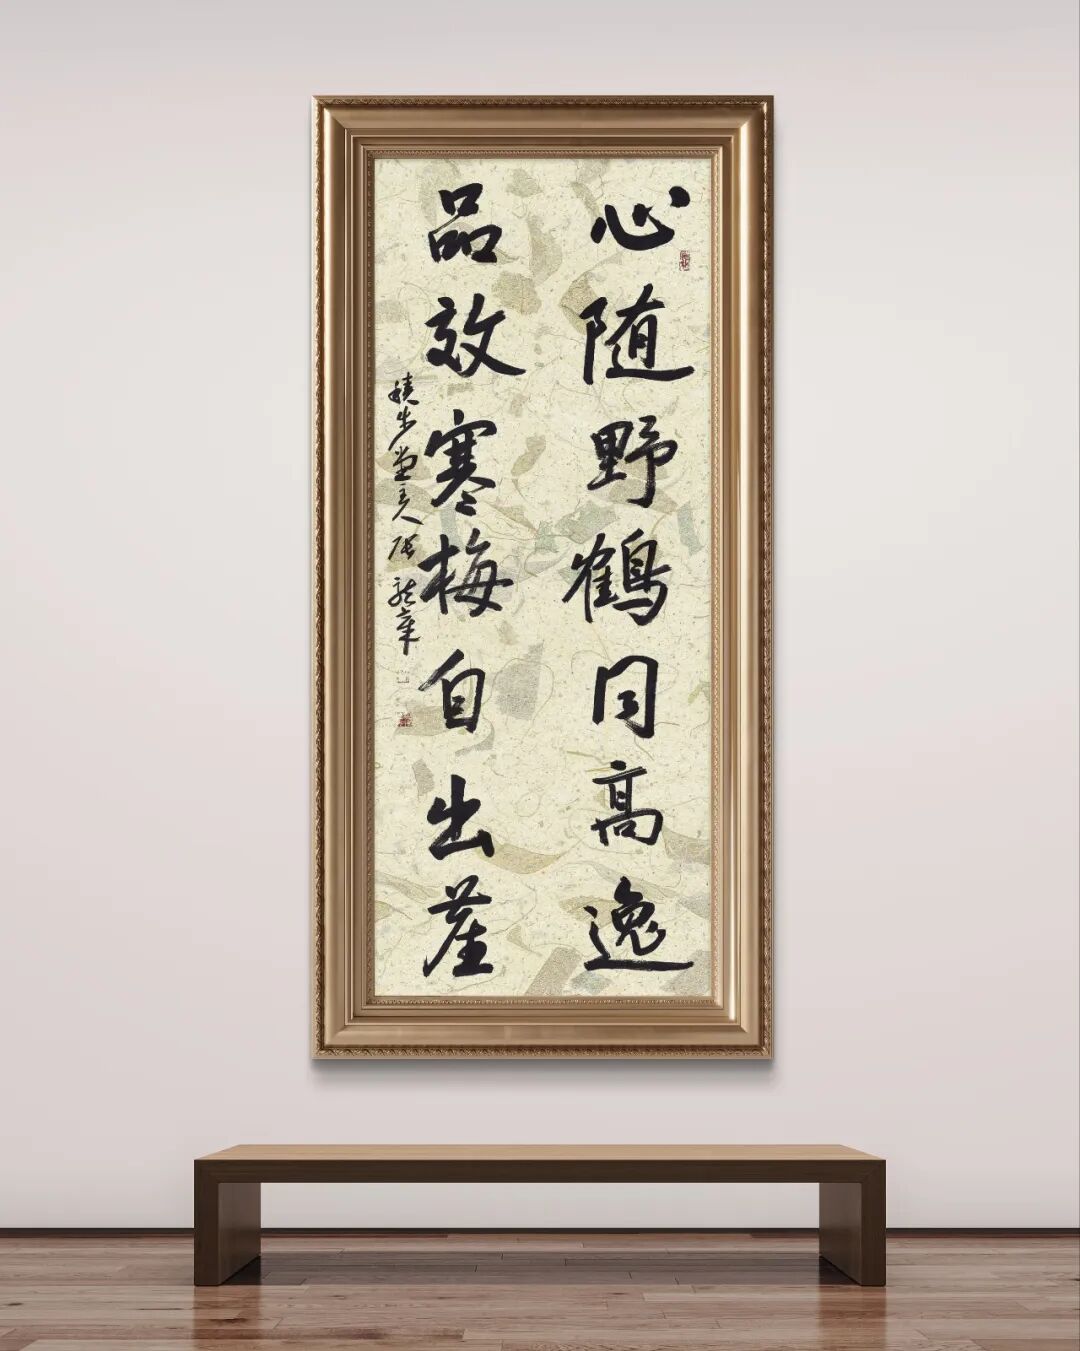 心随野鹤同高逸
品效寒梅自出崖
步堂主人张龍章